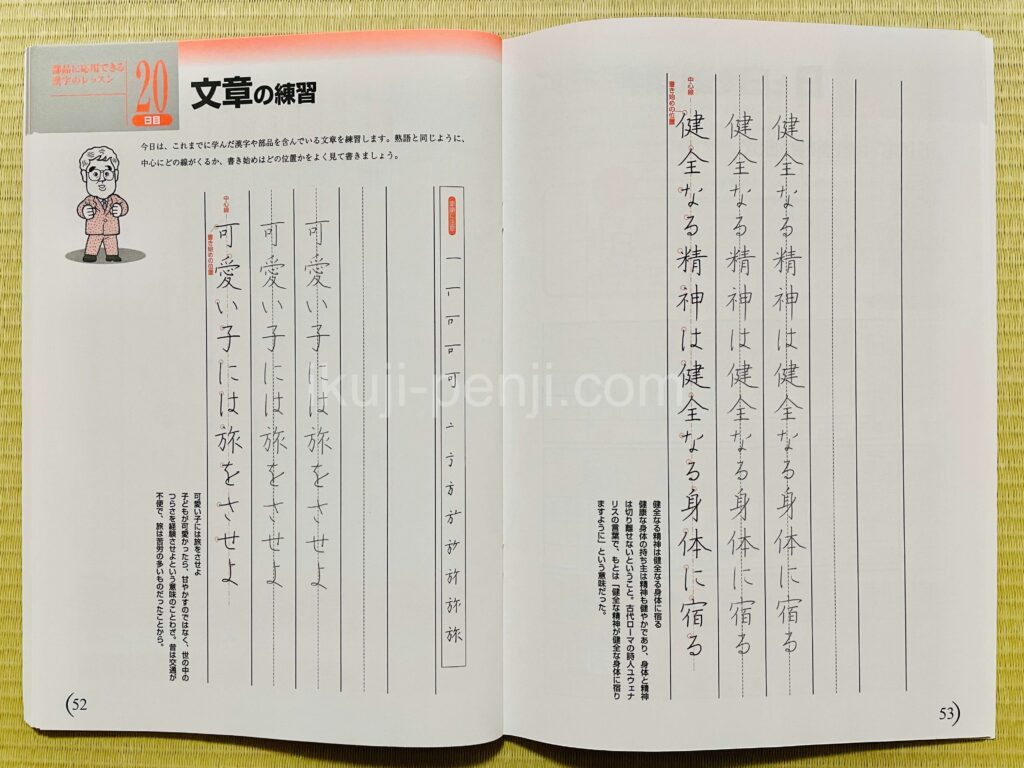 部品に応用できる
漢字のレッスン
20
日目
文章の練習
今日は、これまでに学んだ漢字や部品を含んでいる文章を練習します。熟語と同じように、
中心にどの線がくるか、書き始めはどの位置かをよく見て書きましょう。
可
方
旅
可愛い子には旅をさせよ
可愛い子には旅をさせよ
中心線
書き始めの位置
可愛い子には旅をさせよ
可愛い子には旅をさせよ
子どもが可愛かったら、甘やかすのではなく、世の中の
つらさを経験させよという意味のことわざ。昔は交通が
不便で、旅は苦労の多いものだったことから。
52
健全なる精神は健全なる身体に宿る
健全なる精神は健全なる身体に宿る
中心線
書き始めの位置
健全なる精神は健全なる身体に宿る
健全なる精神は健全なる身体に宿る
健康な身体の持ち主は精神も健やかであり、身体と精神
は切り離せないということ。古代ローマの詩人ユウェナ
リスの言葉で、もとは「健全な精神が健全な身体に宿り
ますように」という意味だった。
53
ikuji-penji.com